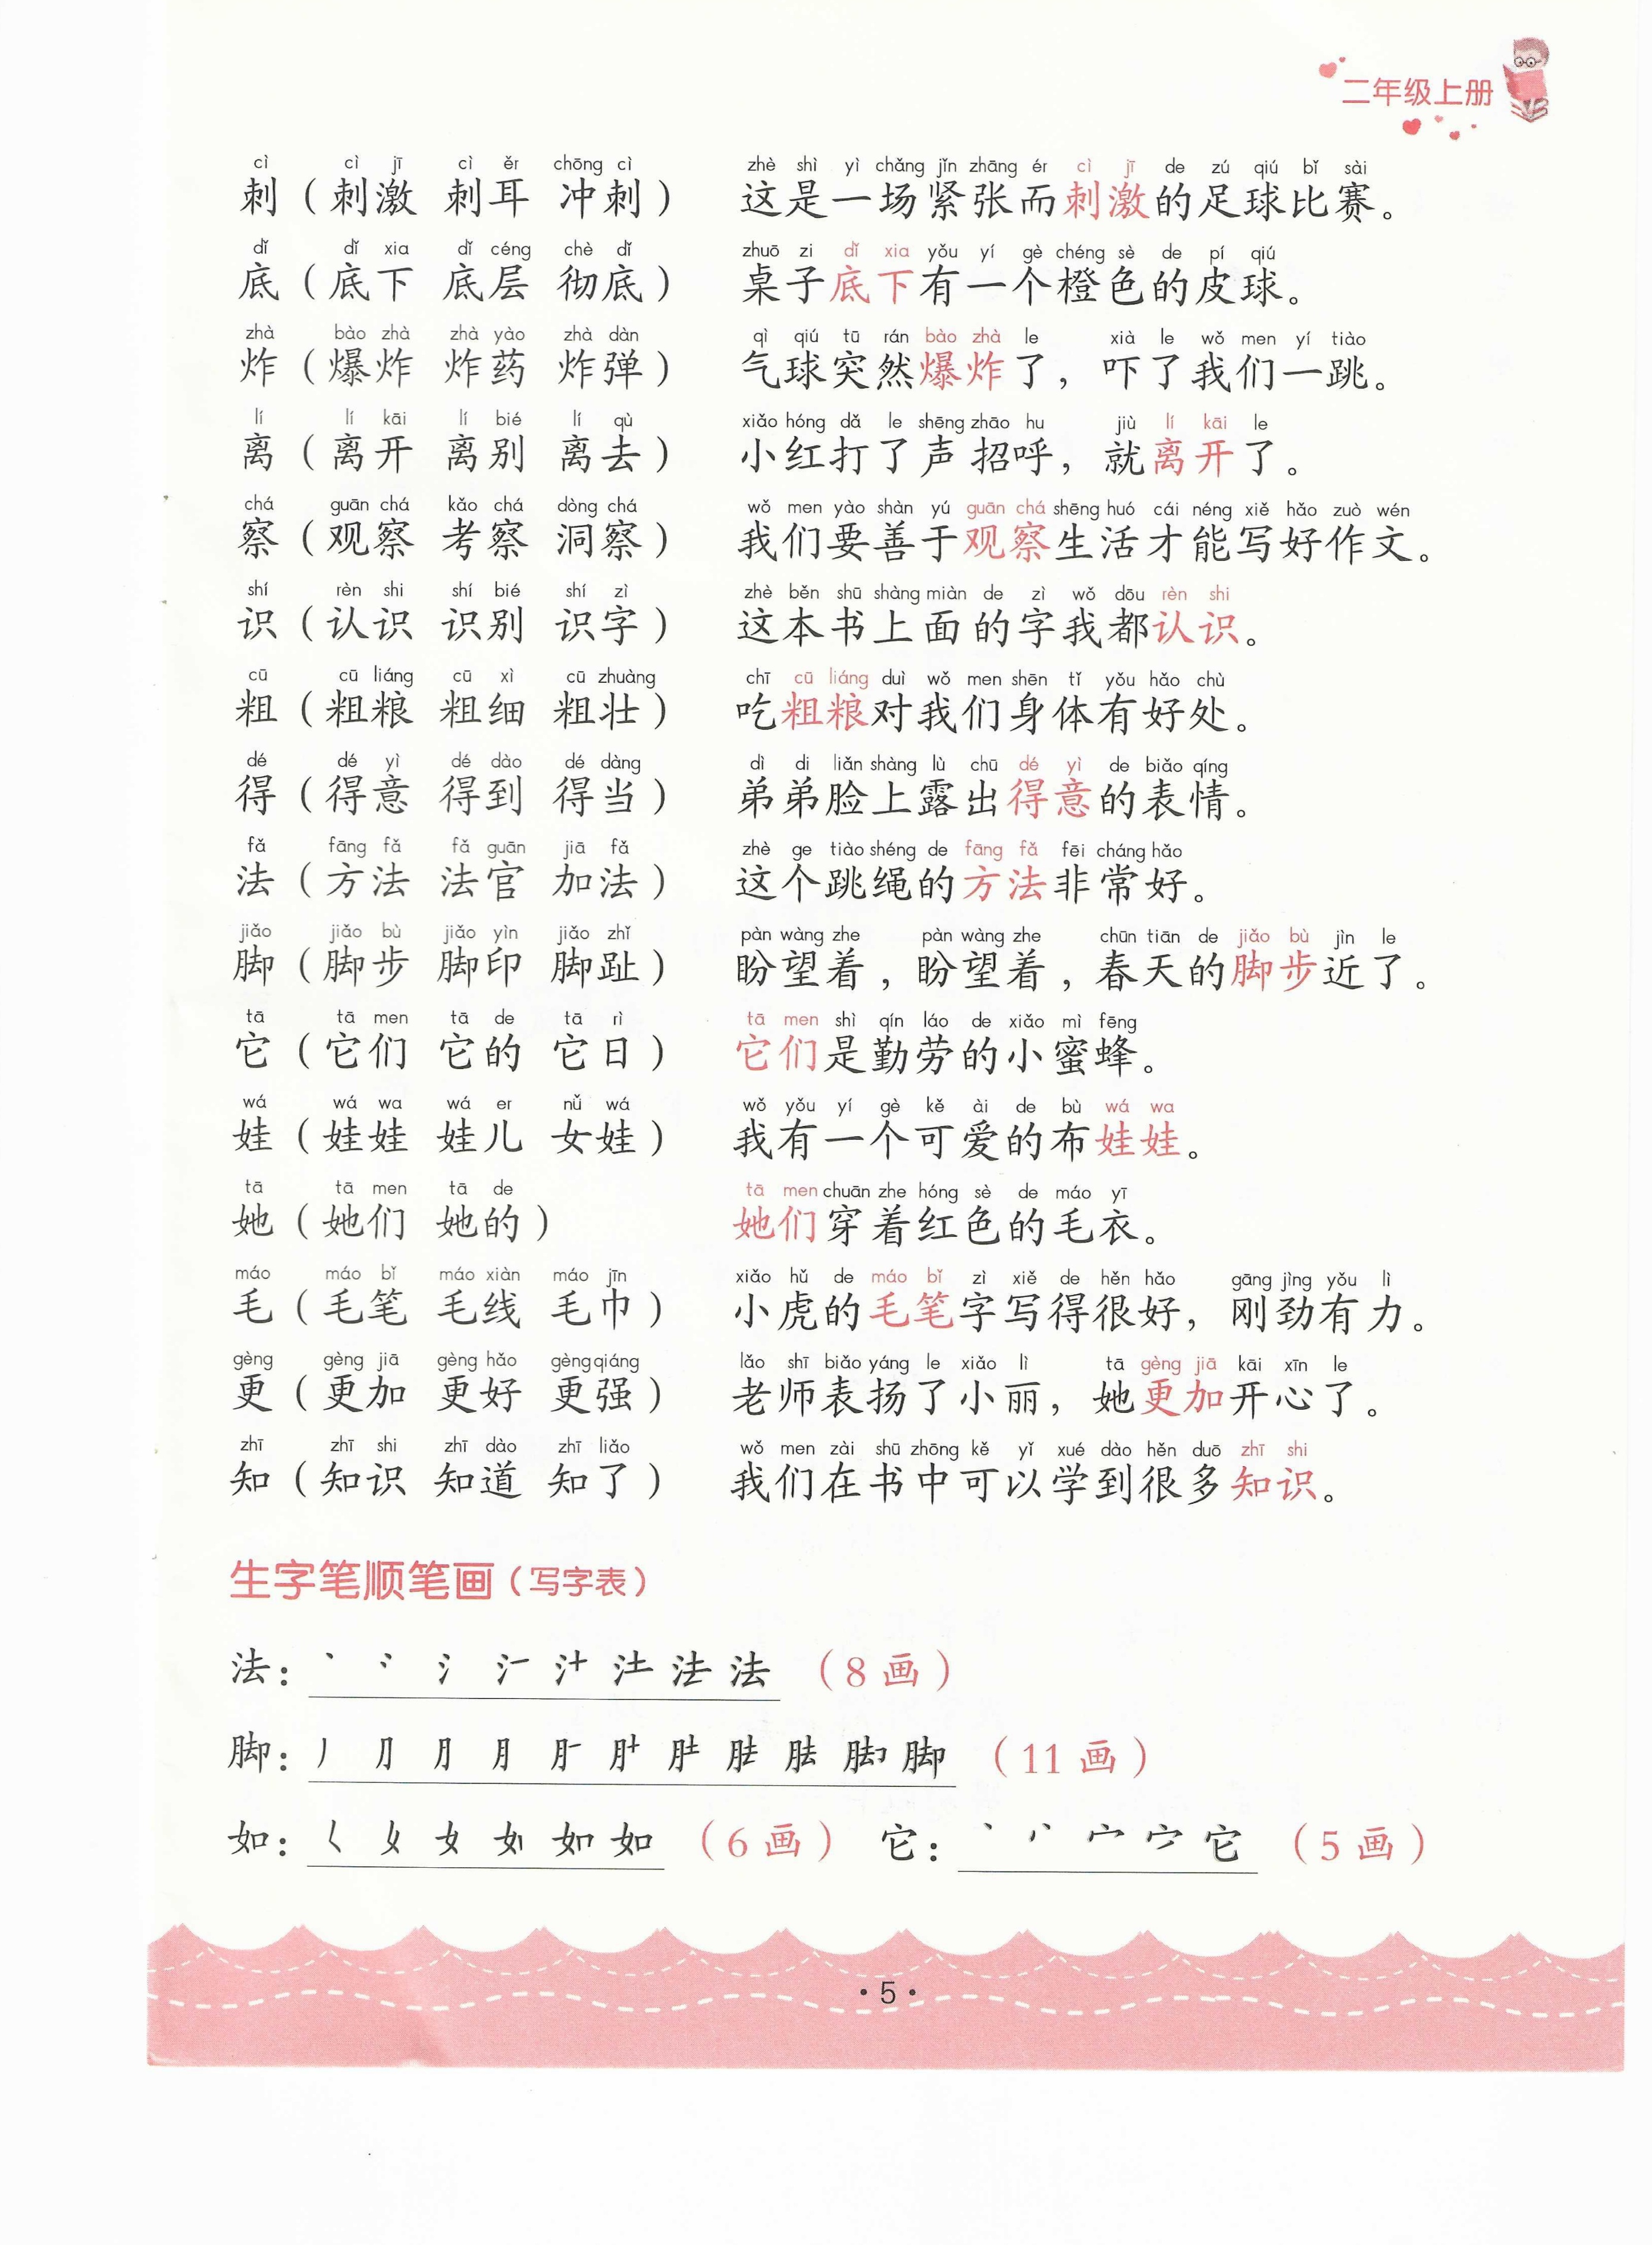 二年级上册
cì cì jī cì ěr chōng cì zhè shì yì chǎng jǐn zhāng ér cì jī de zú qiú bǐ sài
刺（刺激 刺耳 冲刺） 这是一场紧张而刺激的足球比赛。
dǐ dǐ xia dǐ céng chè dǐ zhuō zi dǐ xia yǒu yí gè chéng sè de pí qiú
底（底下 底层 彻底） 桌子底下有一个橙色的皮球。
zhà bào zhà zhà yào zhà dàn qì qiú tū rán bào zhà le xià le wǒ men yí tiào
炸（爆炸 炸药 炸弹） 气球突然爆炸了，吓了我们一跳。
lí lí kāi lí bié lí qù xiǎo hóng dǎ le shēng zhāo hu jiù lí kāi le
离（离开 离别 离去） 小红打了声招呼，就离开了。
chá guān chá kǎo chá dòng chá wǒ men yào shàn yú guān chá shēng huó cái néng xiě hǎo zuò wén
察（观察 考察 洞察） 我们要善于观察生活才能写好作文。
shí rèn shi shí bié shí zì zhè běn shū shàng miàn de zì wǒ dōu rèn shi
识（认识 识别 识字） 这本书上面的字我都认识。
cū cū liáng cū xì cū zhuàng chī cū liáng duì wǒ men shēn tǐ yǒu hǎo chù
粗（粗粮 粗细 粗壮） 吃粗粮对我们身体有好处。
dé dé yì dé dào dé dàng dì di liǎn shàng lù chū dé yì de biǎo qíng
得（得意 得到 得当） 弟弟脸上露出得意的表情。
fǎ fāng fǎ fǎ guān jiā fǎ zhè ge tiào shéng de fāng fǎ fēi cháng hǎo
法（方法 法官 加法） 这个跳绳的方法非常好。
jiǎo jiǎo bù jiǎo yìn jiǎo zhǐ pàn wàng zhe pàn wàng zhe chūn tiān de jiǎo bù jìn le
脚（脚步 脚印 脚趾） 盼望着，盼望着，春天的脚步近了。
tā tā men tā de tā rì tā men shì qín láo de xiǎo mì fēng
它（它们 它的 它日） 它们是勤劳的小蜜蜂。
wá wá wa wá er nǚ wá wǒ yǒu yí gè kě ài de bù wá wa
娃（娃娃 娃儿 女娃） 我有一个可爱的布娃娃。
tā tā men tā de tā men chuān zhe hóng sè de máo yī
她（她们 她的） 她们穿着红色的毛衣。
máo máo bǐ máo xiàn máo jīn xiǎo hǔ de máo bǐ zì xiě de hěn hǎo gāng jìng yǒu lì
毛（毛笔 毛线 毛巾） 小虎的毛笔字写得很好，刚劲有力。
gèng gèng jiā gèng hǎo gèng qiáng lǎo shī biǎo yáng le xiǎo lì tā gèng jiā kāi xīn le
更（更加 更好 更强） 老师表扬了小丽，她更加开心了。
zhī zhī shi zhī dào zhī liǎo wǒ men zài shū zhōng kě yǐ xué dào hěn duō zhī shi
知（知识 知道 知了） 我们在书中可以学到很多知识。
生字笔顺笔画（写字表）
法： 法（8画）
脚： 脚（11画）
如： 如（6画） 它： 它（5画）
·5·